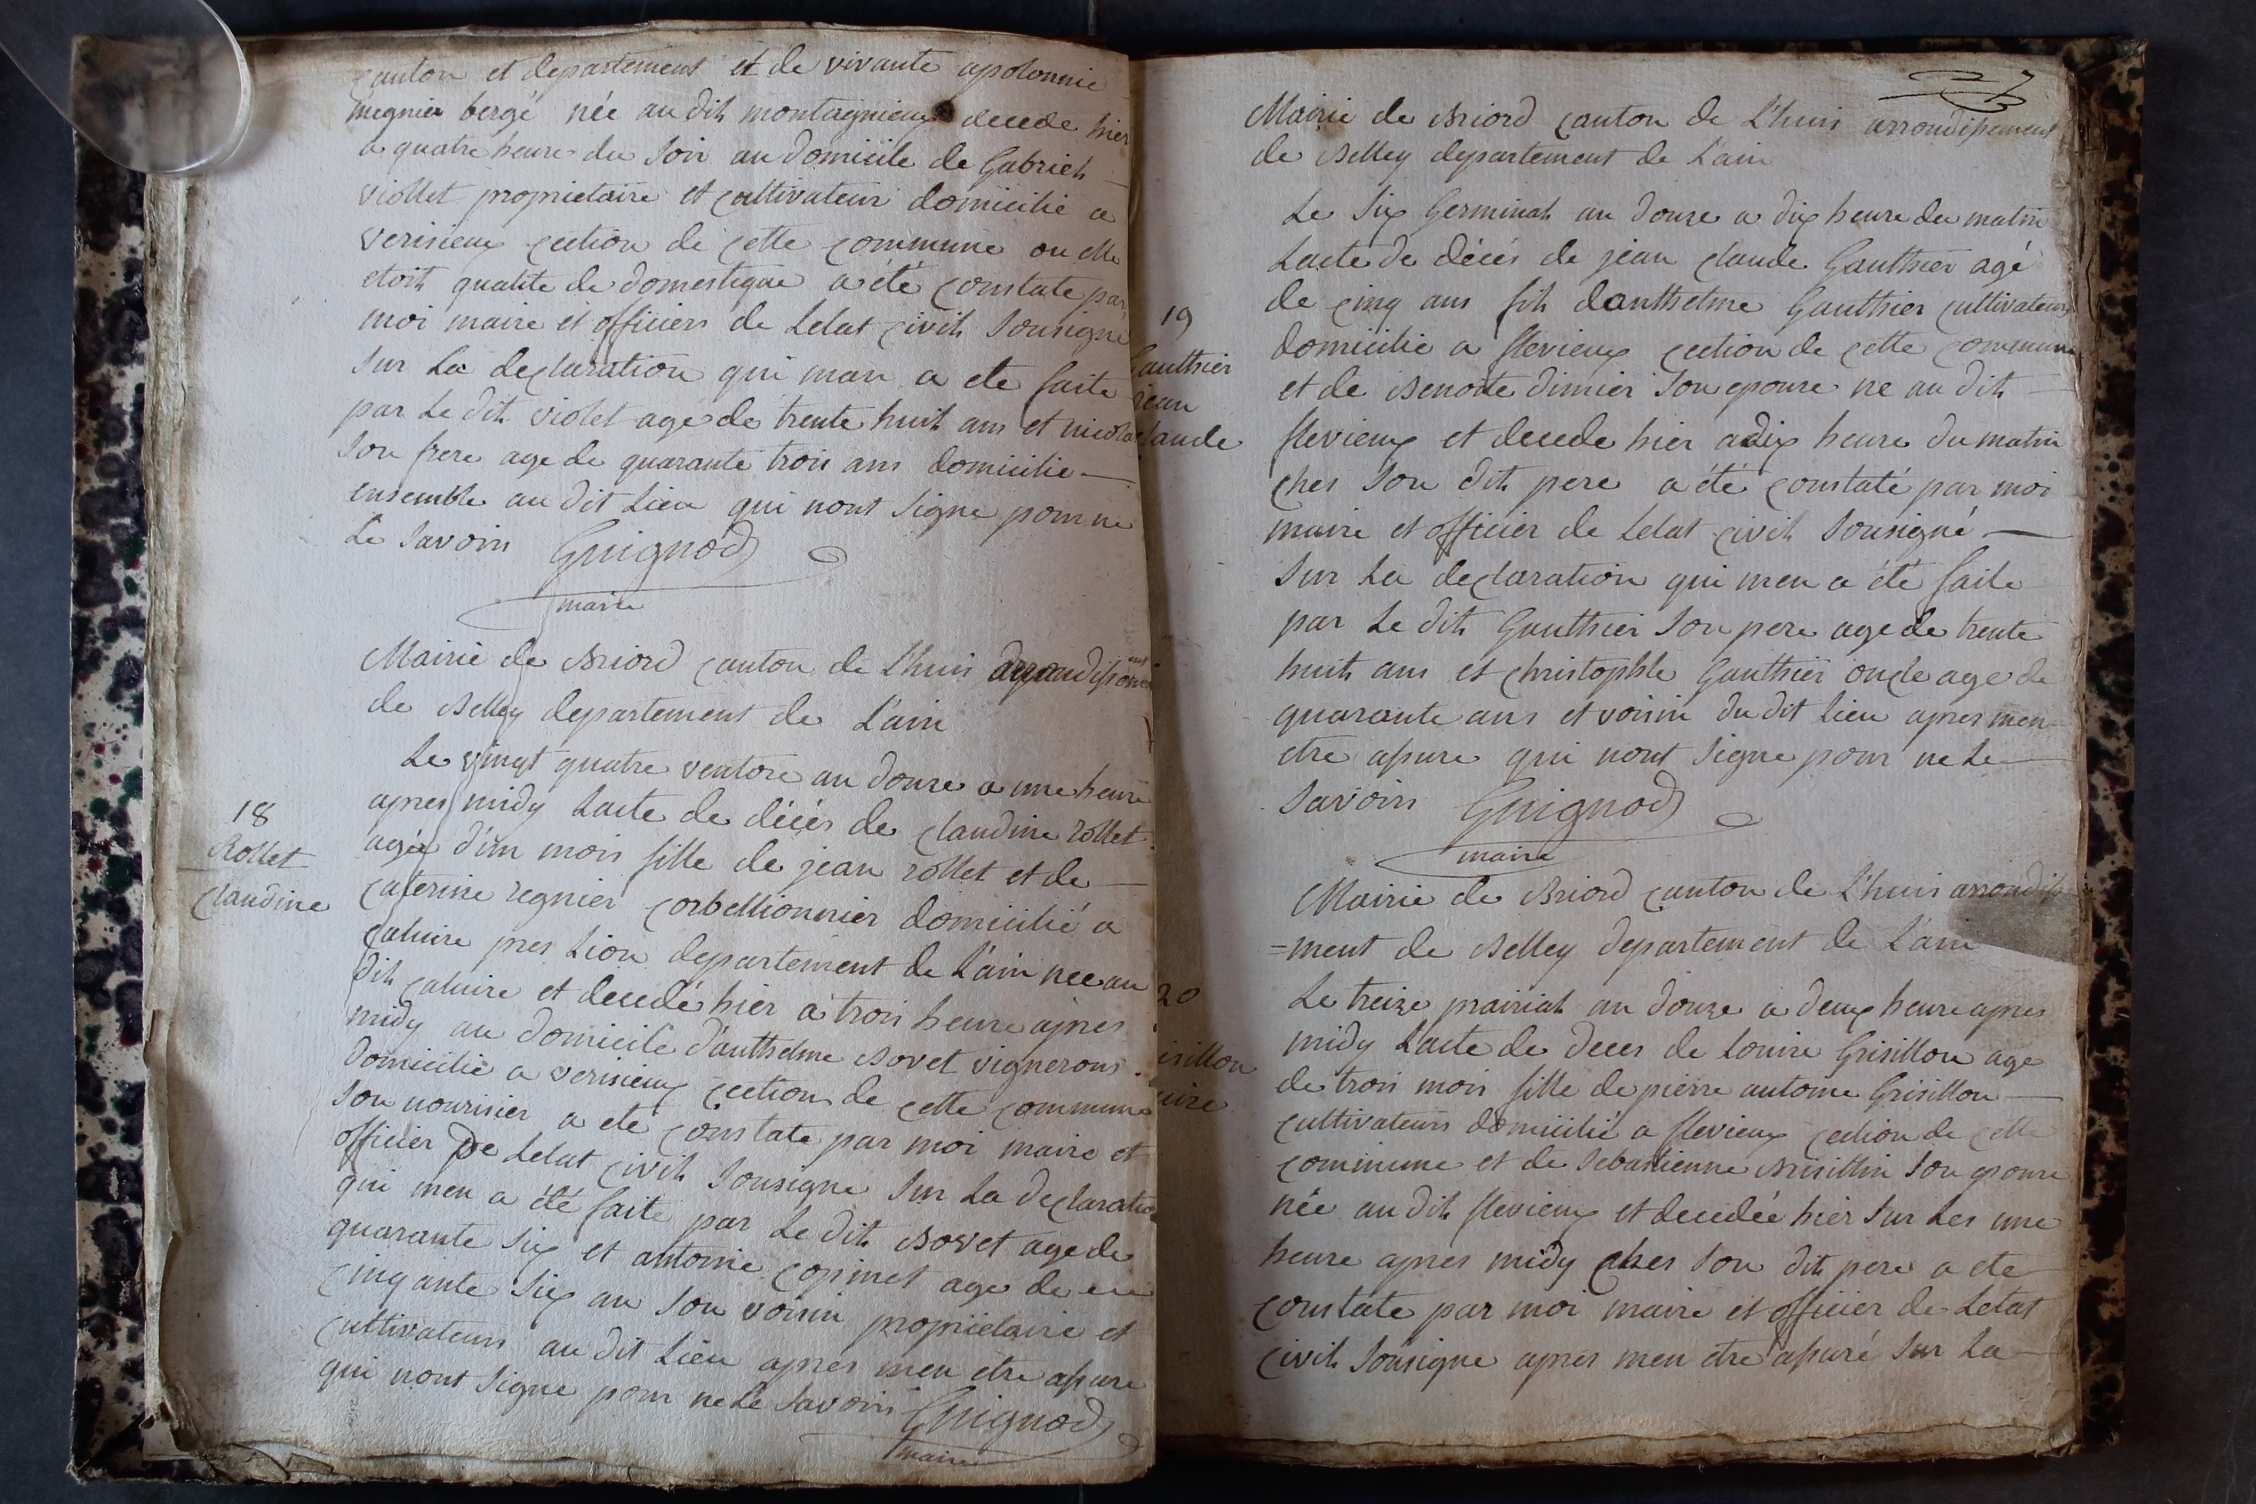 canton et departement et de vivante apolonnie
megnier bergé née au dit montagnieux decede hier
a quatre heure du soir au domicile de Gabriel
viollet proprietaire et cultivateur domicilié a
verisieux cection de cette commune ou elle
etoit qualite de domestique a été constate par
moi maire et officiers de Letat civil sousigne
sur La declaration qui man a ete faite
par Le dit violet age de trente huit ans et nicolas
son frere age de quarante trois ans domicilie
ensemble au dit Lieu qui nont signe pour ne
Le savoir Guignod
maire
Mairie de Briord canton de Lhuis arrondissement
de Belley departement de L'ain
Le vingt quatre ventose an douze a une heure
apres midy Lacte de décés de claudine rollet
agée d'un mois fille de jean rollet et de
caterine regnier corbellionnier domicilié a
caluire pres Lion departement de L'ain nee au
dit caluire et decedé hier a trois heure apres
midy au domicile d'anthelme Bovet vignerons
domicilié a verisieux cection de cette commune
son nourisier a eté constate par moi maire et
officier de Letat civil sousigne sur La declaration
qui men a été faite par Le dit Bovet age de
quarante six et antoine copinet age de
cinquante six an son voisin proprietaire et
cultivateurs au dit Lieu apres men etre assure
qui nont signe pour ne Le savoir Guignod
maire
18
Rollet
claudine
7
Mairie de Briord canton de L'huis arrondissement
de Belley departement de L'ain
Le six Germinal an douze a dix heure du matin
Lacte de décés de jean claude Gauthier agé
de cinq ans fils danthelme Gauthier cultivateur
domicilié a flevieux cection de cette commune
et de Benoite dimier son epouse né au dit
flevieux et decede hier a dix heure du matin
ches son dit pere a été constaté par moi
maire et officier de Letat civil sousigné
sur La declaration qui men a été faite
par Le dit Gauthier son pere age de trente
huit ans et christophle Gauthier oncle age de
quarante ans et voisin du dit lieu apres men
etre assure qui nont signe pour ne Le
savoir Guignod
maire
19
Gauthier
jean
claude
Mairie de Briord canton de L'huis arrondisse
=ment de Belley departement de L'ain
Le treize prairial an douze a deux heure apres
midy Lacte de deces de Louise Grisillon age
de trois mois fille de pierre antoine Grisillon
cultivateurs domicilié a flevieux cection de cette
commune et de sebastienne Brisillin son epouse
née au dit flevieux et decedée hier sur Les une
heure apres midy ches son dit pere a ete
constate par moi maire et officier de Letat
civil sousigne apres men etre assuré sur La
20
isillon
uise